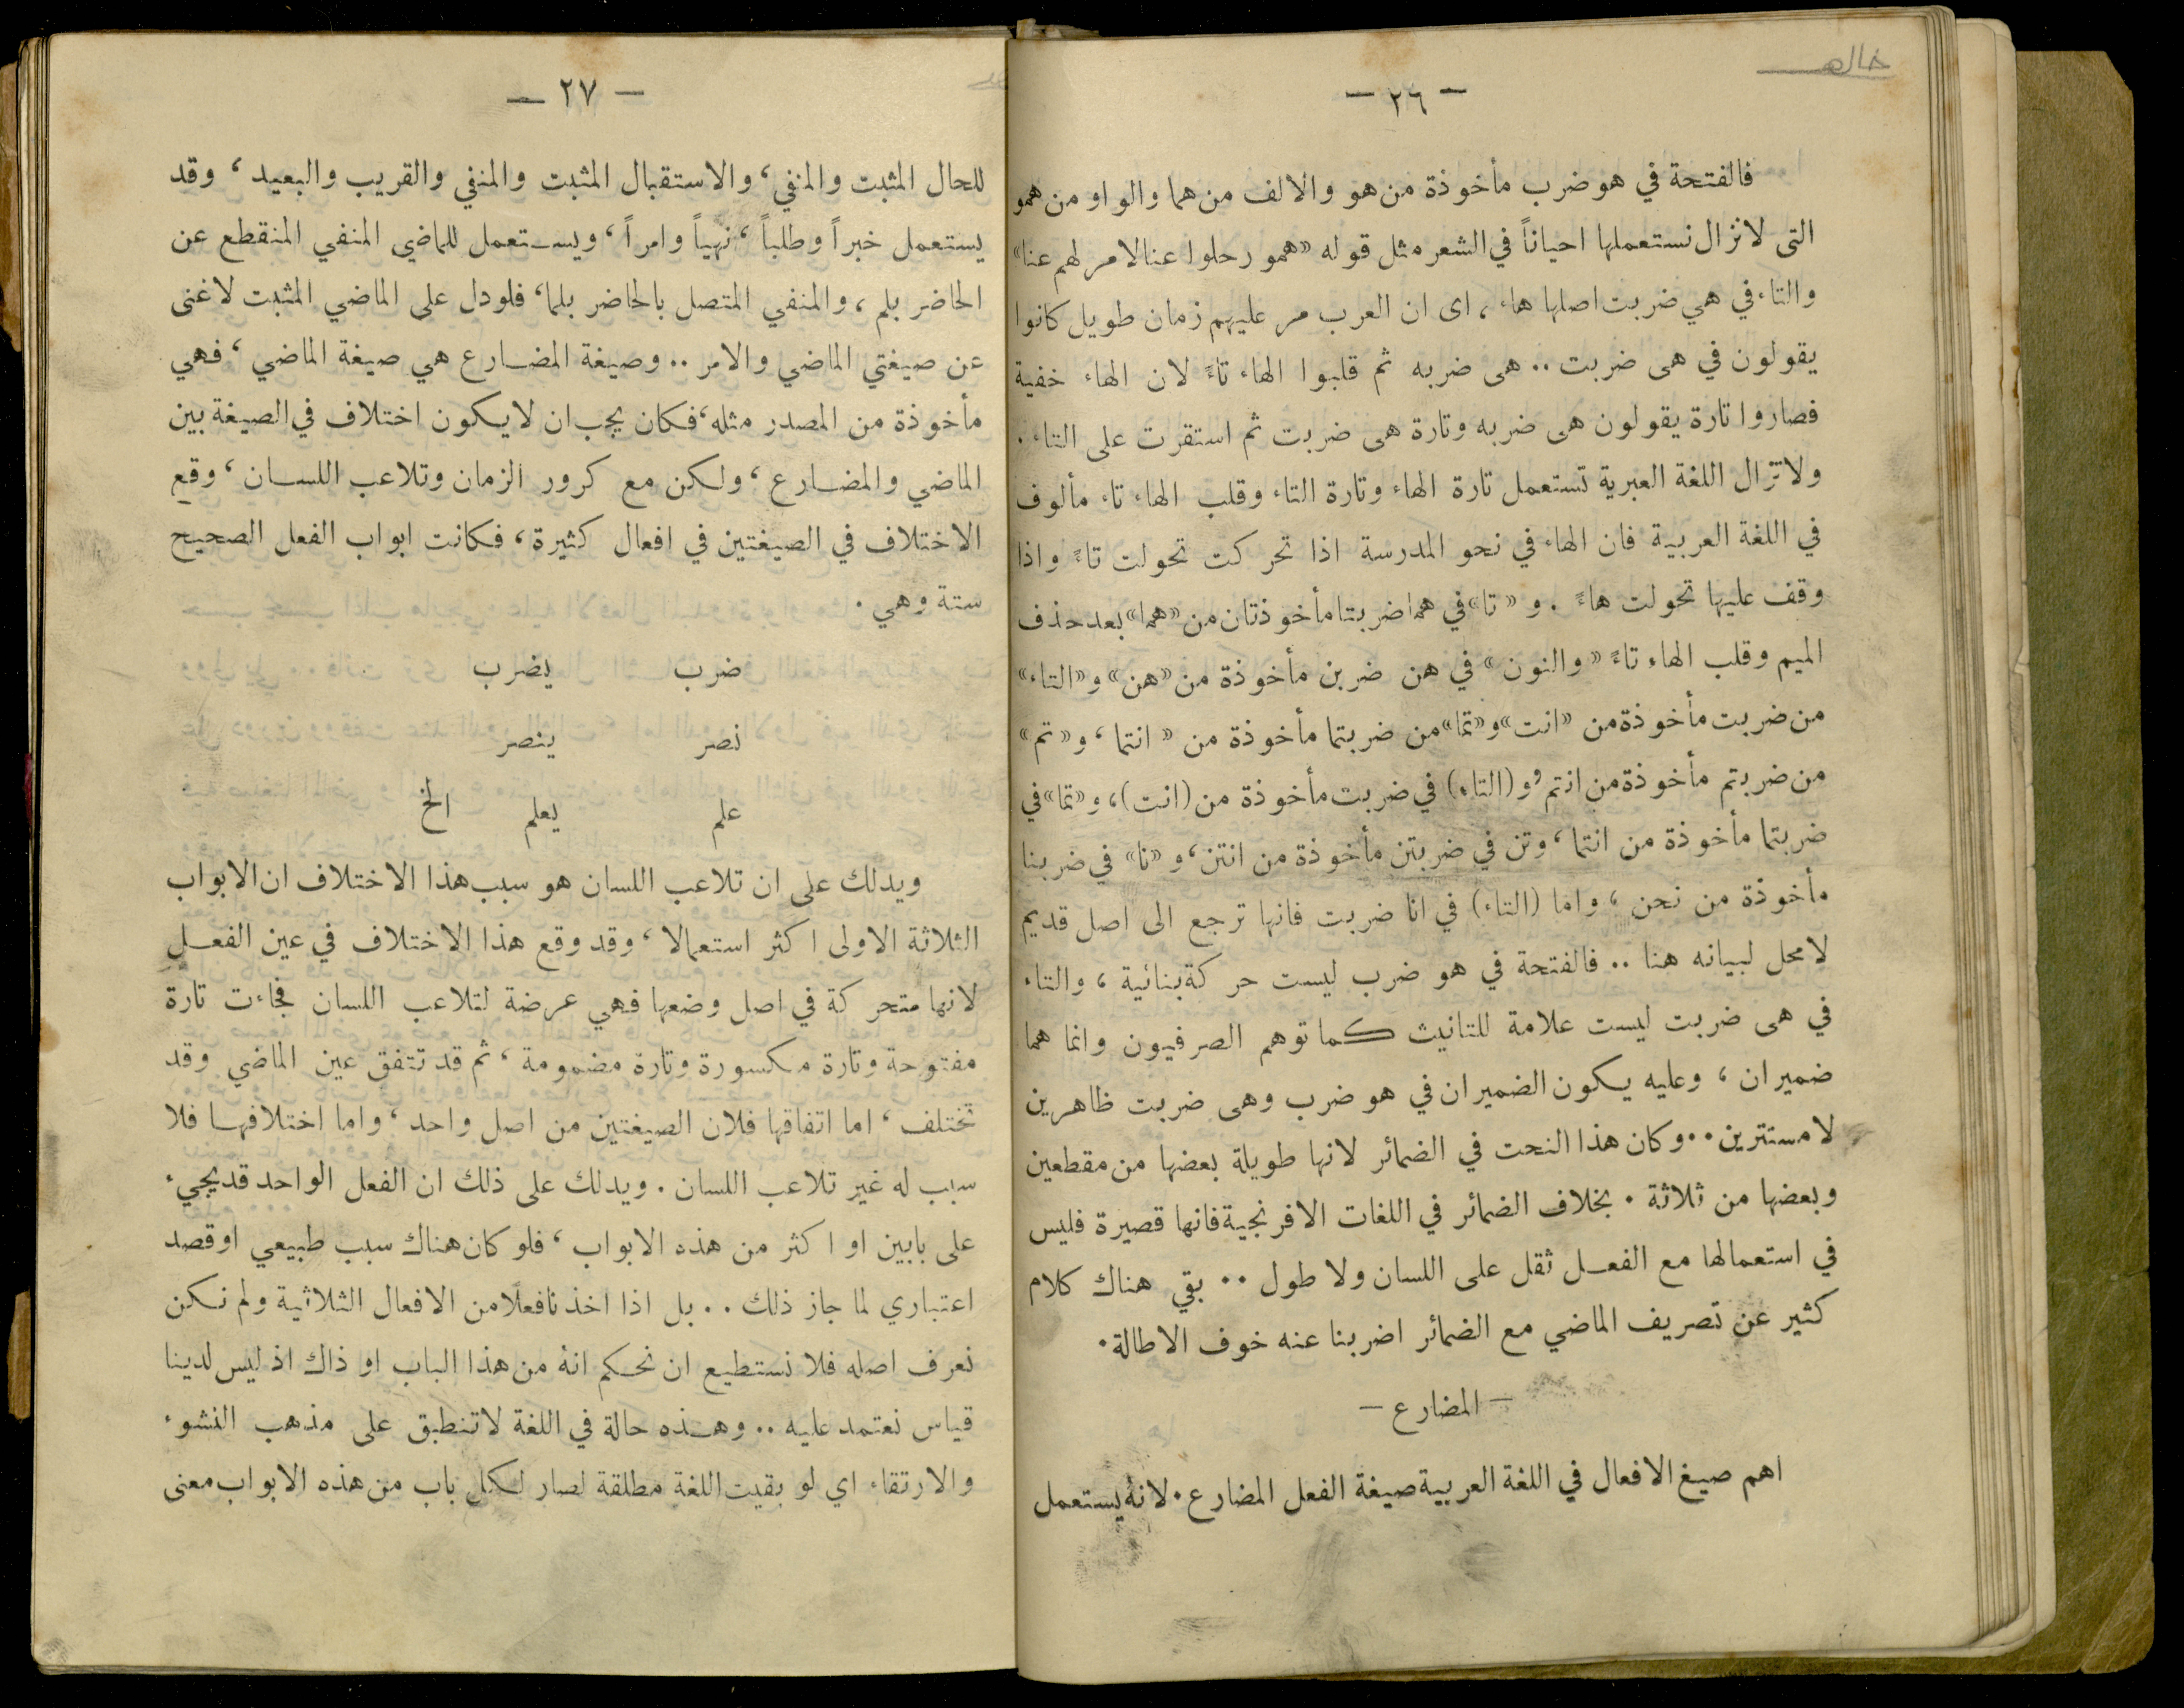 — ٢٦ —
فالفتحة في هو ضرب مأخوذة من هو والالف من هما والواو من همو
التى لا نزال نستعملها احياناً في الشعر مثل قوله «همو رحلوا عنا لامر لهم عنا»
والتاء في هي ضربت اصلها هاء ، اى ان العرب مر عليهم زمان طويل كانوا
يقولون في هى ضربت .. هى ضربه ثم قلبوا الهاء تاءً لان الهاء خفية
فصاروا تارة يقولون هى ضربه وتارة هى ضربت ثم استقرت على التاء .
ولا تزال اللغة العبرية تستعمل تارة الهاء وتارة التاء وقلب الهاء تاء مألوف
في اللغة العربية فان الهاء في نحو المدرسة اذا تحركت تحولت تاءً واذا
وقف عليها تحولت هاءً . و «تا» في هما ضربتا مأخوذتان من «هما» بعد حذف
الميم وقلب الهاء تاءً «والنون» في هن ضربن مأخوذة من «هن» و «التاء»
من ضربت مأخوذة من «انت» و «تما» من ضربتما مأخوذة من « انتما ، و « تم »
من ضربتم مأخوذة من انتم و (التاء) في ضربت مأخوذة من (انت) ، و «تما» في
ضربتما مأخوذة من انتما ، وتن في ضربتن مأخوذة من انتن ، و «نا» في ضربنا
مأخوذة من نحن ، واما (التاء) في انا ضربت فانها ترجع الى اصل قديم
لا محل لبيانه هنا .. فالفتحة في هو ضرب ليست حركة بنائية ، والتاء
في هى ضربت ليست علامة للتانيث كما توهم الصرفيون وانما هما
ضميران ، وعليه يكون الضميران في هو ضرب وهى ضربت ظاهرين
لا مستترين .. وكان هذا النحت في الضمائر لانها طويلة بعضها من مقطعين
وبعضها من ثلاثة . بخلاف الضمائر في اللغات الافرنجية فانها قصيرة فليس
في استعمالها مع الفعل ثقل على اللسان ولا طول .. بقي هناك كلام
كثير عن تصريف الماضي مع الضمائر اضربنا عنه خوف الاطالة .
— المضارع —
اهم صيغ الافعال في اللغة العربية صيغة الفعل المضارع . لانه يستعمل
— ٢٧ —
للحال المثبت والمنفي ، والاستقبال المثبت والمنفي والقريب والبعيد ، وقد
يستعمل خبراً وطلباً ، نهياً وامراً ، ويستعمل للماضي المنفي المنقطع عن
الحاضر بلم ، والمنفي المتصل بالحاضر بلما ، فلو دل على الماضي المثبت لاغنى
عن صيغتي الماضي والامر .. وصيغة المضارع هي صيغة الماضي ، فهي
مأخوذة من المصدر مثله ، فكان يجب ان لا يكون اختلاف في الصيغة بين
الماضي والمضارع ، ولكن مع كرور الزمان وتلاعب اللسان ، وقع
الاختلاف في الصيغتين في افعال كثيرة ، فكانت ابواب الفعل الصحيح
ستة وهي .
ضرب يضرب
نصر ينصر
علم يعلم الخ
ويدلك على ان تلاعب اللسان هو سبب هذا الاختلاف ان الابواب
الثلاثة الاولى اكثر استعمالا ، وقد وقع هذا الاختلاف في عين الفعل
لانها متحركة في اصل وضعها فهي عرضة لتلاعب اللسان فجاءت تارة
مفتوحة وتارة مكسورة وتارة مضمومة ، ثم قد تتفق عين الماضي وقد
تختلف ، اما اتفاقها فلان الصيغتين من اصل واحد ، واما اختلافها فلا
سبب له غير تلاعب اللسان . ويدلك على ذلك ان الفعل الواحد قد يجيء
على بابين او اكثر من هذه الابواب ، فلو كان هناك سبب طبيعي او قصد
اعتباري لما جاز ذلك .. بل اذا اخذنا فعلًا من الافعال الثلاثية ولم نكن
نعرف اصله فلا نستطيع ان نحكم انه من هذا الباب او ذاك اذ ليس لدينا
قياس نعتمد عليه .. وهذه حالة في اللغة لا تنطبق على مذهب النشوء
والارتقاء اي لو بقيت اللغة مطلقة لصار لكل باب من هذه الابواب معنى